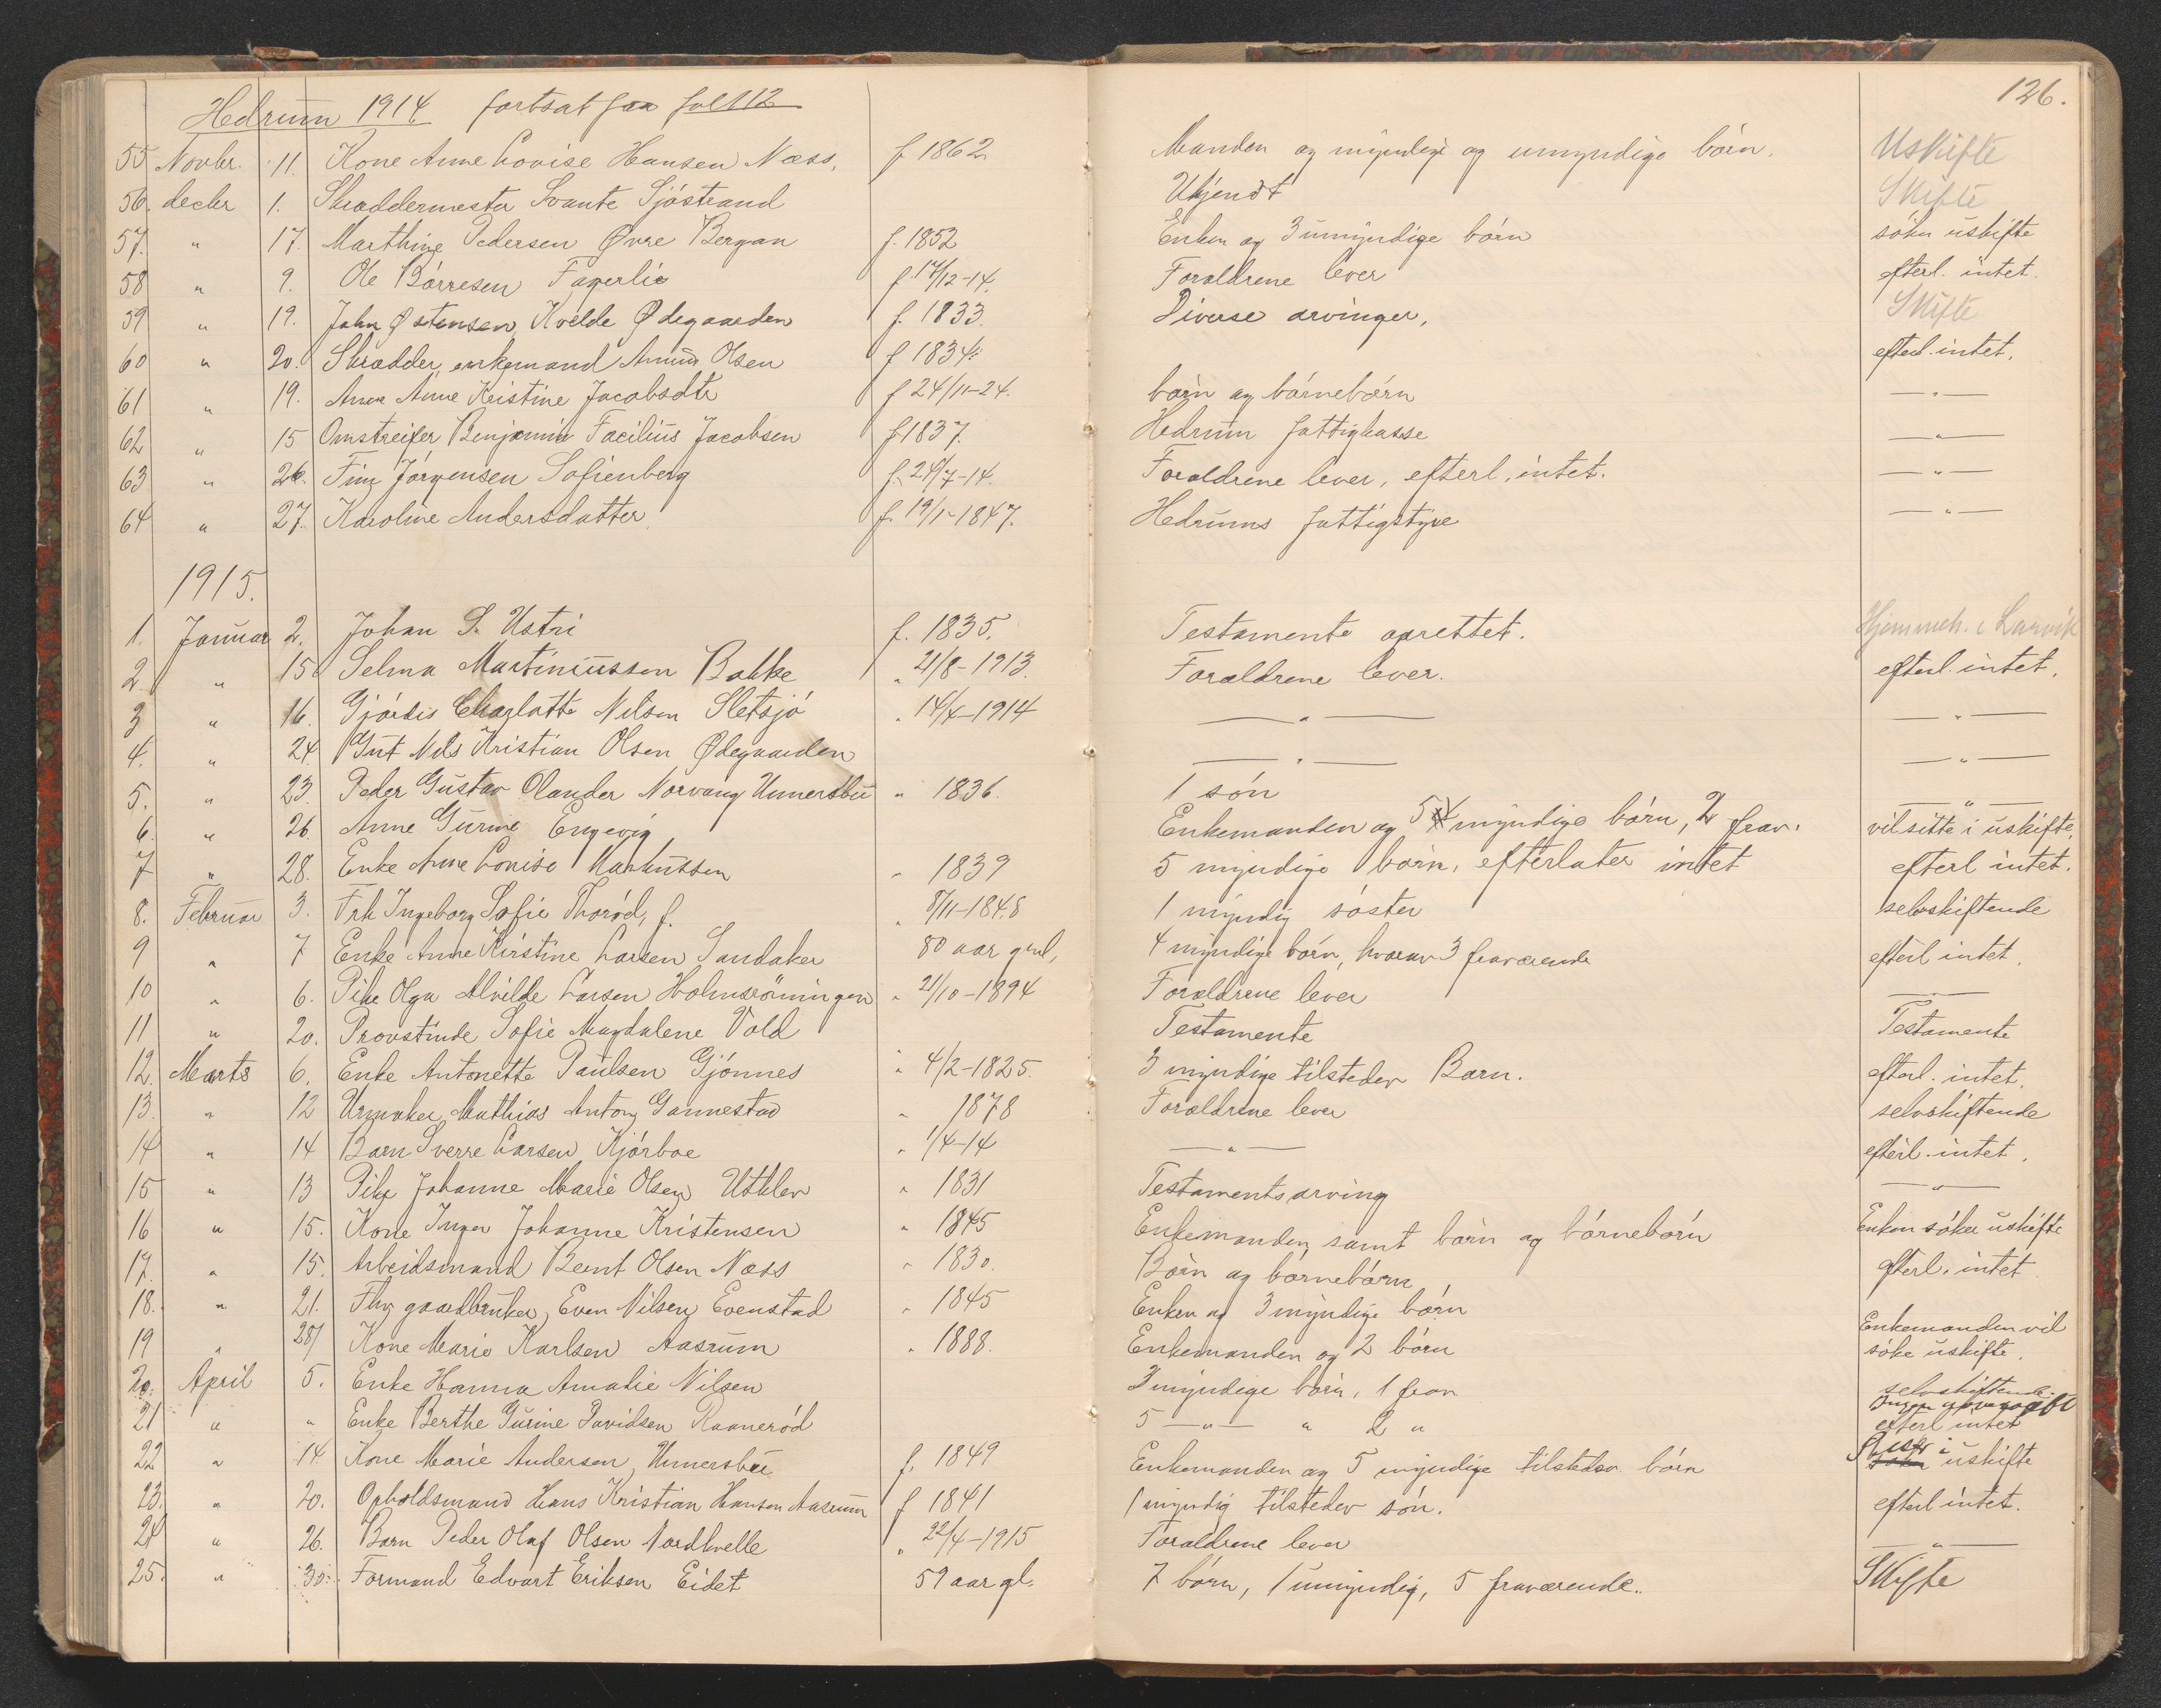 126.
Hedrum 1914 fortsat fra fol 112
55 Novbr. 11. Kone Anne Lovise Hansen Næss, f 1862 Manden og myndige og umyndige börn. Uskifte
56. decbr 1. Skræddermester Svante Sjöstrand Ukjendt Skifte
57. " 17. Marthine Pedersen Øvre Bergan f. 1852 Enken og 3 umyndige börn söker uskifte
58 " 9. Ole Börresen Fagerlie f 17/12-14. Forældrene lever efterl. intet.
59 " 19. John Østensen, Kvelde Ødegaarden f. 1833. Diverse arvinger, Skifte
60 " 20. Skrædder, enkemand Amund Olsen f 1834 efterl. intet.
61 " 19. Anne Kristine Jacobsdtr f 24/11-24. börn og börnebörn — " —
62 " 15 Omstreifer Benjamin Facilius Jacobsen f 1837. Hedrum fattigkasse — " —
63 " 26. Finn Jörgensen Sofienberg f. 24/7-14. Forældrene lever, efterl. intet. — " —
64 " 27. Karoline Andersdatter f. 19/1-1847. Hedrums fattigstyre — " —
1915.
1. Januar 2. Johan S. Ustri f. 1835. Testamente oprettet. Hjemmeh. i Larvik
2. " 15 Selma Martinussen Bakke " 21/8-1913. Forældrene lever. efterl. intet.
3 " 16. Gjördis Charlotte Nilsen Sletsjö " 14/4-1914 — " — — " —
4. " 24 Gut Nils Kristian Olsen Ødegaarden — " — — " —
5. " 23. Peder Gustav Olander Norvang Unnersbu " 1836. 1 sön — " —
6. " 26. Anne Gurine Engevig Enkemanden og 5 myndige börn, 2 frav. vil sitte i uskifte.
7 " 28. Enke Anne Lovise Markussen " 1839 5 myndige börn, efterlater intet efterl intet.
8. Februar 3. Frk Ingeborg Sofie Thoröd, f. " 8/11-1848 1 myndig söster selvskiftende
9 " 7 Enke Anne Kirstine Larsen Sandaker 80 aar gml, 4 myndige börn, hvorav 3 fraværende efterl intet.
10 " 6. Pike Olga Alvilde Larsen Holmsröningen " 21/10-1894 Forældrene lever — " —
11 " 20. Provstinde Sofie Magdalene Vold Testamente Testamente
12. Marts 6. Enke Antonette Paulsen Gjönnes " 4/2-1825. 3 myndige tilstedev Barn. efterl. intet.
13. " 12 Urmaker Mathias Anton Gannestad " 1878 Forældrene lever selvskiftende
14 " 14 Barn Sverre Larsen Kjörboe " 1/4-14 — " — efterl. intet.
15 " 13 Pike Johanne Marie Olsen Utklev " 1831 Testamentsarving — " —
16 " 15. Kone Inger Johanne Kristensen " 1845 Enkemanden, samt börn og börnebörn Enken söker uskifte
17. " 15. Arbeidsmand Bernt Olsen Næss " 1830. Börn og börnebörn efterl. intet
18. " 21. Fhv gaardbruker, Even Nilsen Evenstad " 1845 Enken og 3 myndige börn
19 " 28/ Kone Marie Karlsen Aasrum " 1888. Enkemanden og 2 börn Enkemanden vil söke uskifte.
20. April 5. Enke Hanna Amalie Nilsen 3 myndige börn, 1 frav selvskiftende.
21 " " Enke Berthe Gurine Davidsen Raaneröd 5 — " — " 2 " efterl intet
22 " 14 Kone Marie Andersen, Unnersbu f. 1849 Enkemanden og 5 myndige tilstedev. börn i uskifte
23. " 20. Opholdsmand Hans Kristian Hansen Aasrum f 1841 1 myndig tilstedev sön. efterl intet.
24 " 26. Barn Peder Olaf Olsen Nordkvelle " 22/4-1915 Forældrene lever — " —
25. " 30. Formand Edvart Eriksen Eidet 59 aar gl. 7 börn, 1 umyndig, 5 fraværende. Skifte